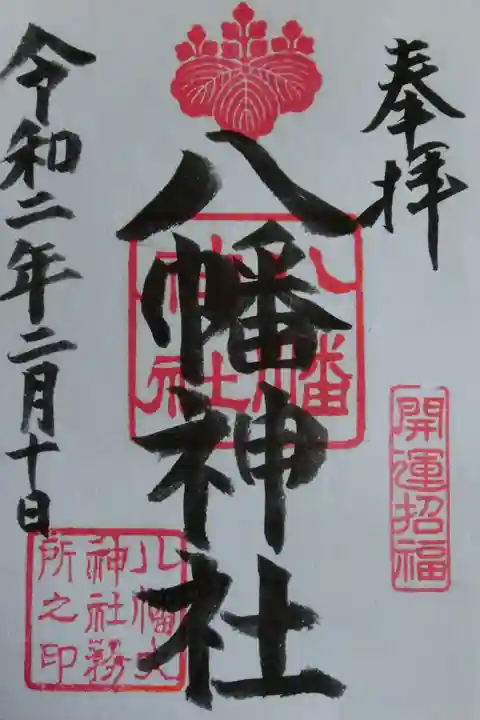 奉拝
開運招福
八幡神社
八幡
神社
八幡大
神社務
所之印
令和二年二月十日